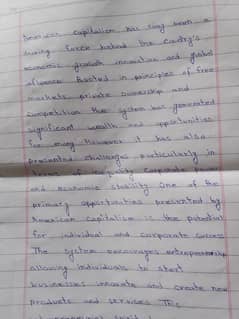 American capitalism has long been a
driving force behind the Country's
economic growth innovation and global
influence Rooted in principles of free
markets private ownership and
competition the system has generated
significant wealth and opportunities
for many However it has also
presented challenges particularly in
terms of regulating corporate power
and economic stability One of the
primary opportunities presented by
American capitalism is the potential
for individual and corporate success
The system encourages entrepreneurship
allowing individuals to start
businesses innovate and create new
products and services This
entrepreneurial spirit